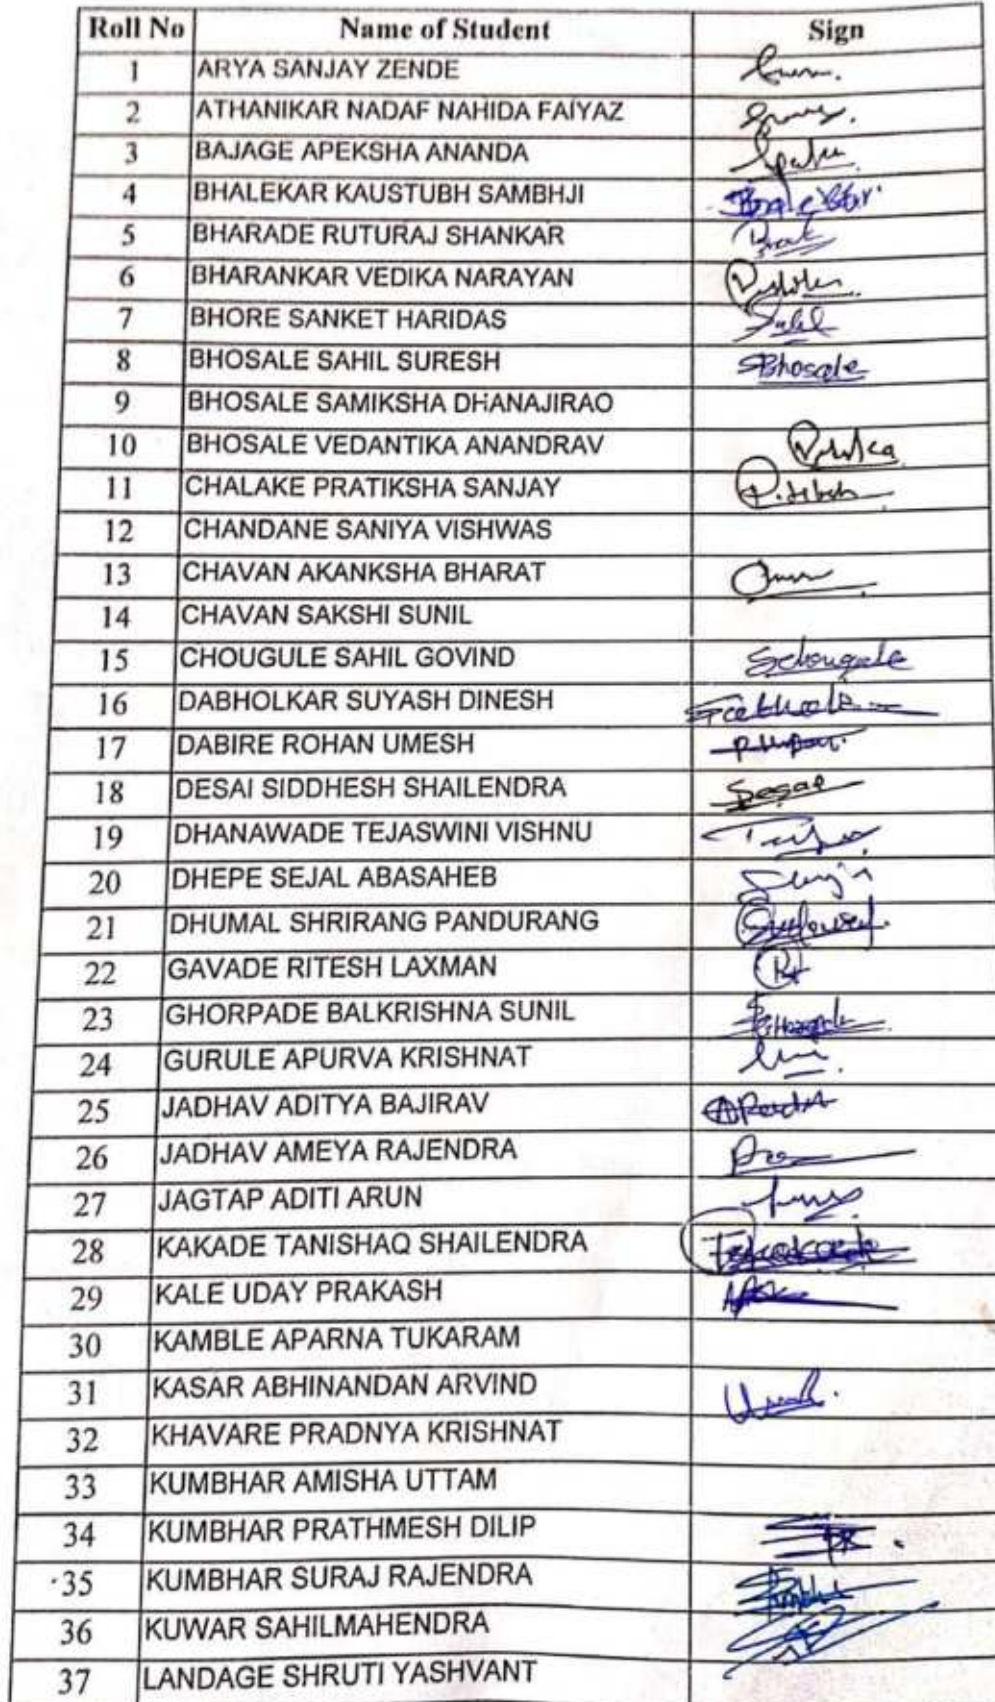 Roll No Name of Student Sign
1 ARYA SANJAY ZENDE
2 ATHANIKAR NADAF NAHIDA FAIYAZ
3 BAJAGE APEKSHA ANANDA
4 BHALEKAR KAUSTUBH SAMBHJI
5 BHARADE RUTURAJ SHANKAR
6 BHARANKAR VEDIKA NARAYAN
7 BHORE SANKET HARIDAS
8 BHOSALE SAHIL SURESH SBhosale
9 BHOSALE SAMIKSHA DHANAJIRAO
10 BHOSALE VEDANTIKA ANANDRAV
11 CHALAKE PRATIKSHA SANJAY
12 CHANDANE SANIYA VISHWAS
13 CHAVAN AKANKSHA BHARAT
14 CHAVAN SAKSHI SUNIL
15 CHOUGULE SAHIL GOVIND
16 DABHOLKAR SUYASH DINESH
17 DABIRE ROHAN UMESH
18 DESAI SIDDHESH SHAILENDRA
19 DHANAWADE TEJASWINI VISHNU
20 DHEPE SEJAL ABASAHEB
21 DHUMAL SHRIRANG PANDURANG
22 GAVADE RITESH LAXMAN
23 GHORPADE BALKRISHNA SUNIL
24 GURULE APURVA KRISHNAT
25 JADHAV ADITYA BAJIRAV
26 JADHAV AMEYA RAJENDRA
27 JAGTAP ADITI ARUN
28 KAKADE TANISHAQ SHAILENDRA
29 KALE UDAY PRAKASH
30 KAMBLE APARNA TUKARAM
31 KASAR ABHINANDAN ARVIND
32 KHAVARE PRADNYA KRISHNAT
33 KUMBHAR AMISHA UTTAM
34 KUMBHAR PRATHMESH DILIP
35 KUMBHAR SURAJ RAJENDRA
36 KUWAR SAHILMAHENDRA
37 LANDAGE SHRUTI YASHVANT